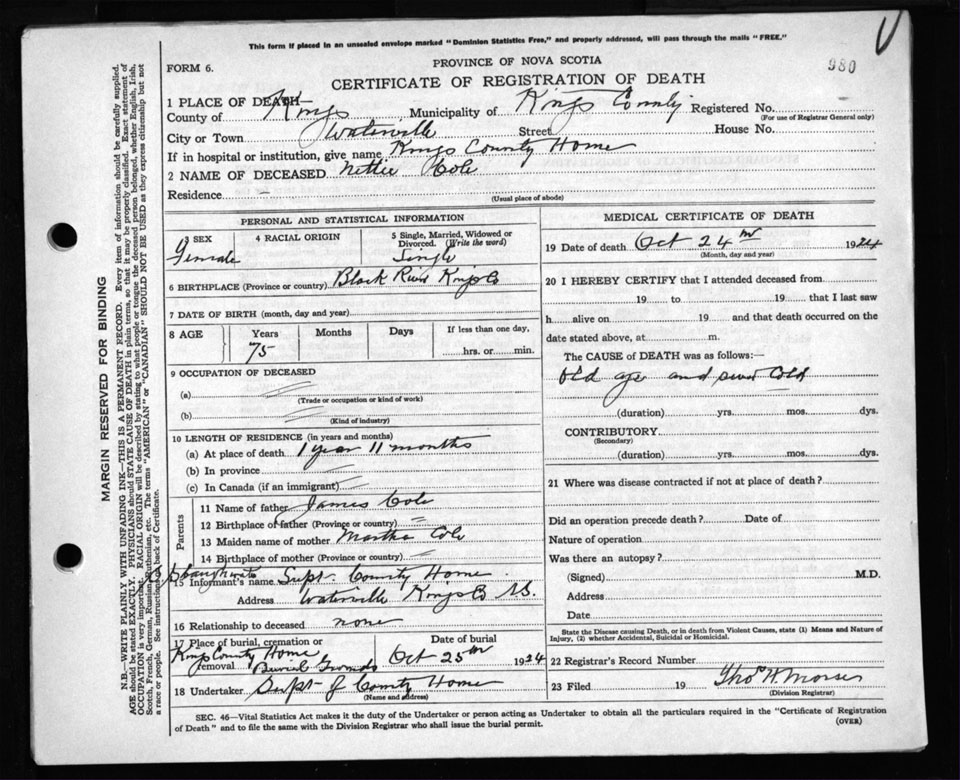 This form if placed in an unsealed envelope marked "Dominion Statistics Free," and properly addressed, will pass through the mails "FREE."
FORM 6.
PROVINCE OF NOVA SCOTIA
980
CERTIFICATE OF REGISTRATION OF DEATH
1 PLACE OF DEATH—
County of Kings Municipality of Kings County Registered No.
(For use of Registrar General only)
City or Town Waterville Street House No.
If in hospital or institution, give name Kings County Home
2 NAME OF DECEASED Nettie Cole
Residence
(Usual place of abode)
PERSONAL AND STATISTICAL INFORMATION
3 SEX
Female
4 RACIAL ORIGIN
5 Single, Married, Widowed or
Divorced. (Write the word)
Single
6 BIRTHPLACE (Province or country) Black River Kings Co
7 DATE OF BIRTH (month, day and year)
8 AGE
Years
75
Months
Days
If less than one day,
hrs. or min.
9 OCCUPATION OF DECEASED
(a)
(Trade or occupation or kind of work)
(b)
(Kind of industry)
10 LENGTH OF RESIDENCE (in years and months)
(a) At place of death 1 year 11 months
(b) In province
(c) In Canada (if an immigrant)
Parents
11 Name of father James Cole
12 Birthplace of father (Province or country)
13 Maiden name of mother Martha Cole
14 Birthplace of mother (Province or country)
15 Informant's name Supt. County Home
Address Waterville Kings Co N.S.
16 Relationship to deceased none
17 Place of burial, cremation or
removal
Kings County Home
Burial Grounds
Date of burial
Oct 25th 1924
18 Undertaker Supt of County Home
(Name and address)
MEDICAL CERTIFICATE OF DEATH
19 Date of death Oct 24th 1924
(Month, day and year)
20 I HEREBY CERTIFY that I attended deceased from
19 to 19 that I last saw
h alive on 19 and that death occurred on the
date stated above, at m.
The CAUSE of DEATH was as follows:—
Old age and Cold
(duration) yrs. mos. dys.
CONTRIBUTORY
(Secondary)
(duration) yrs. mos. dys.
21 Where was disease contracted if not at place of death?
Did an operation precede death? Date of
Nature of operation
Was there an autopsy?
(Signed) M.D.
Address
Date
State the Disease causing Death, or in death from Violent Causes, state (1) Means and Nature of
Injury, (2) whether Accidental, Suicidal or Homicidal.
22 Registrar's Record Number
23 Filed 19 Thos H Morse
(Division Registrar)
SEC. 46—Vital Statistics Act makes it the duty of the Undertaker or person acting as Undertaker to obtain all the particulars required in the "Certificate of Registration
of Death" and to file the same with the Division Registrar who shall issue the burial permit.
(OVER)
MARGIN RESERVED FOR BINDING
N.B.—WRITE PLAINLY WITH UNFADING INK—THIS IS A PERMANENT RECORD. Every item of information should be carefully supplied.
AGE should be stated EXACTLY. PHYSICIANS should STATE CAUSE OF DEATH in plain terms, so that it may be properly classified. Exact statement of
OCCUPATION is very important. RACIAL ORIGIN will be described by stating to what people or tongue the deceased person belonged, whether English, Irish,
Scotch, French, German, Russian, Ruthenian, etc. The terms "AMERICAN" or "CANADIAN" SHOULD NOT BE USED as they express citizenship but not
a race or people. See instructions on back of Certificate.